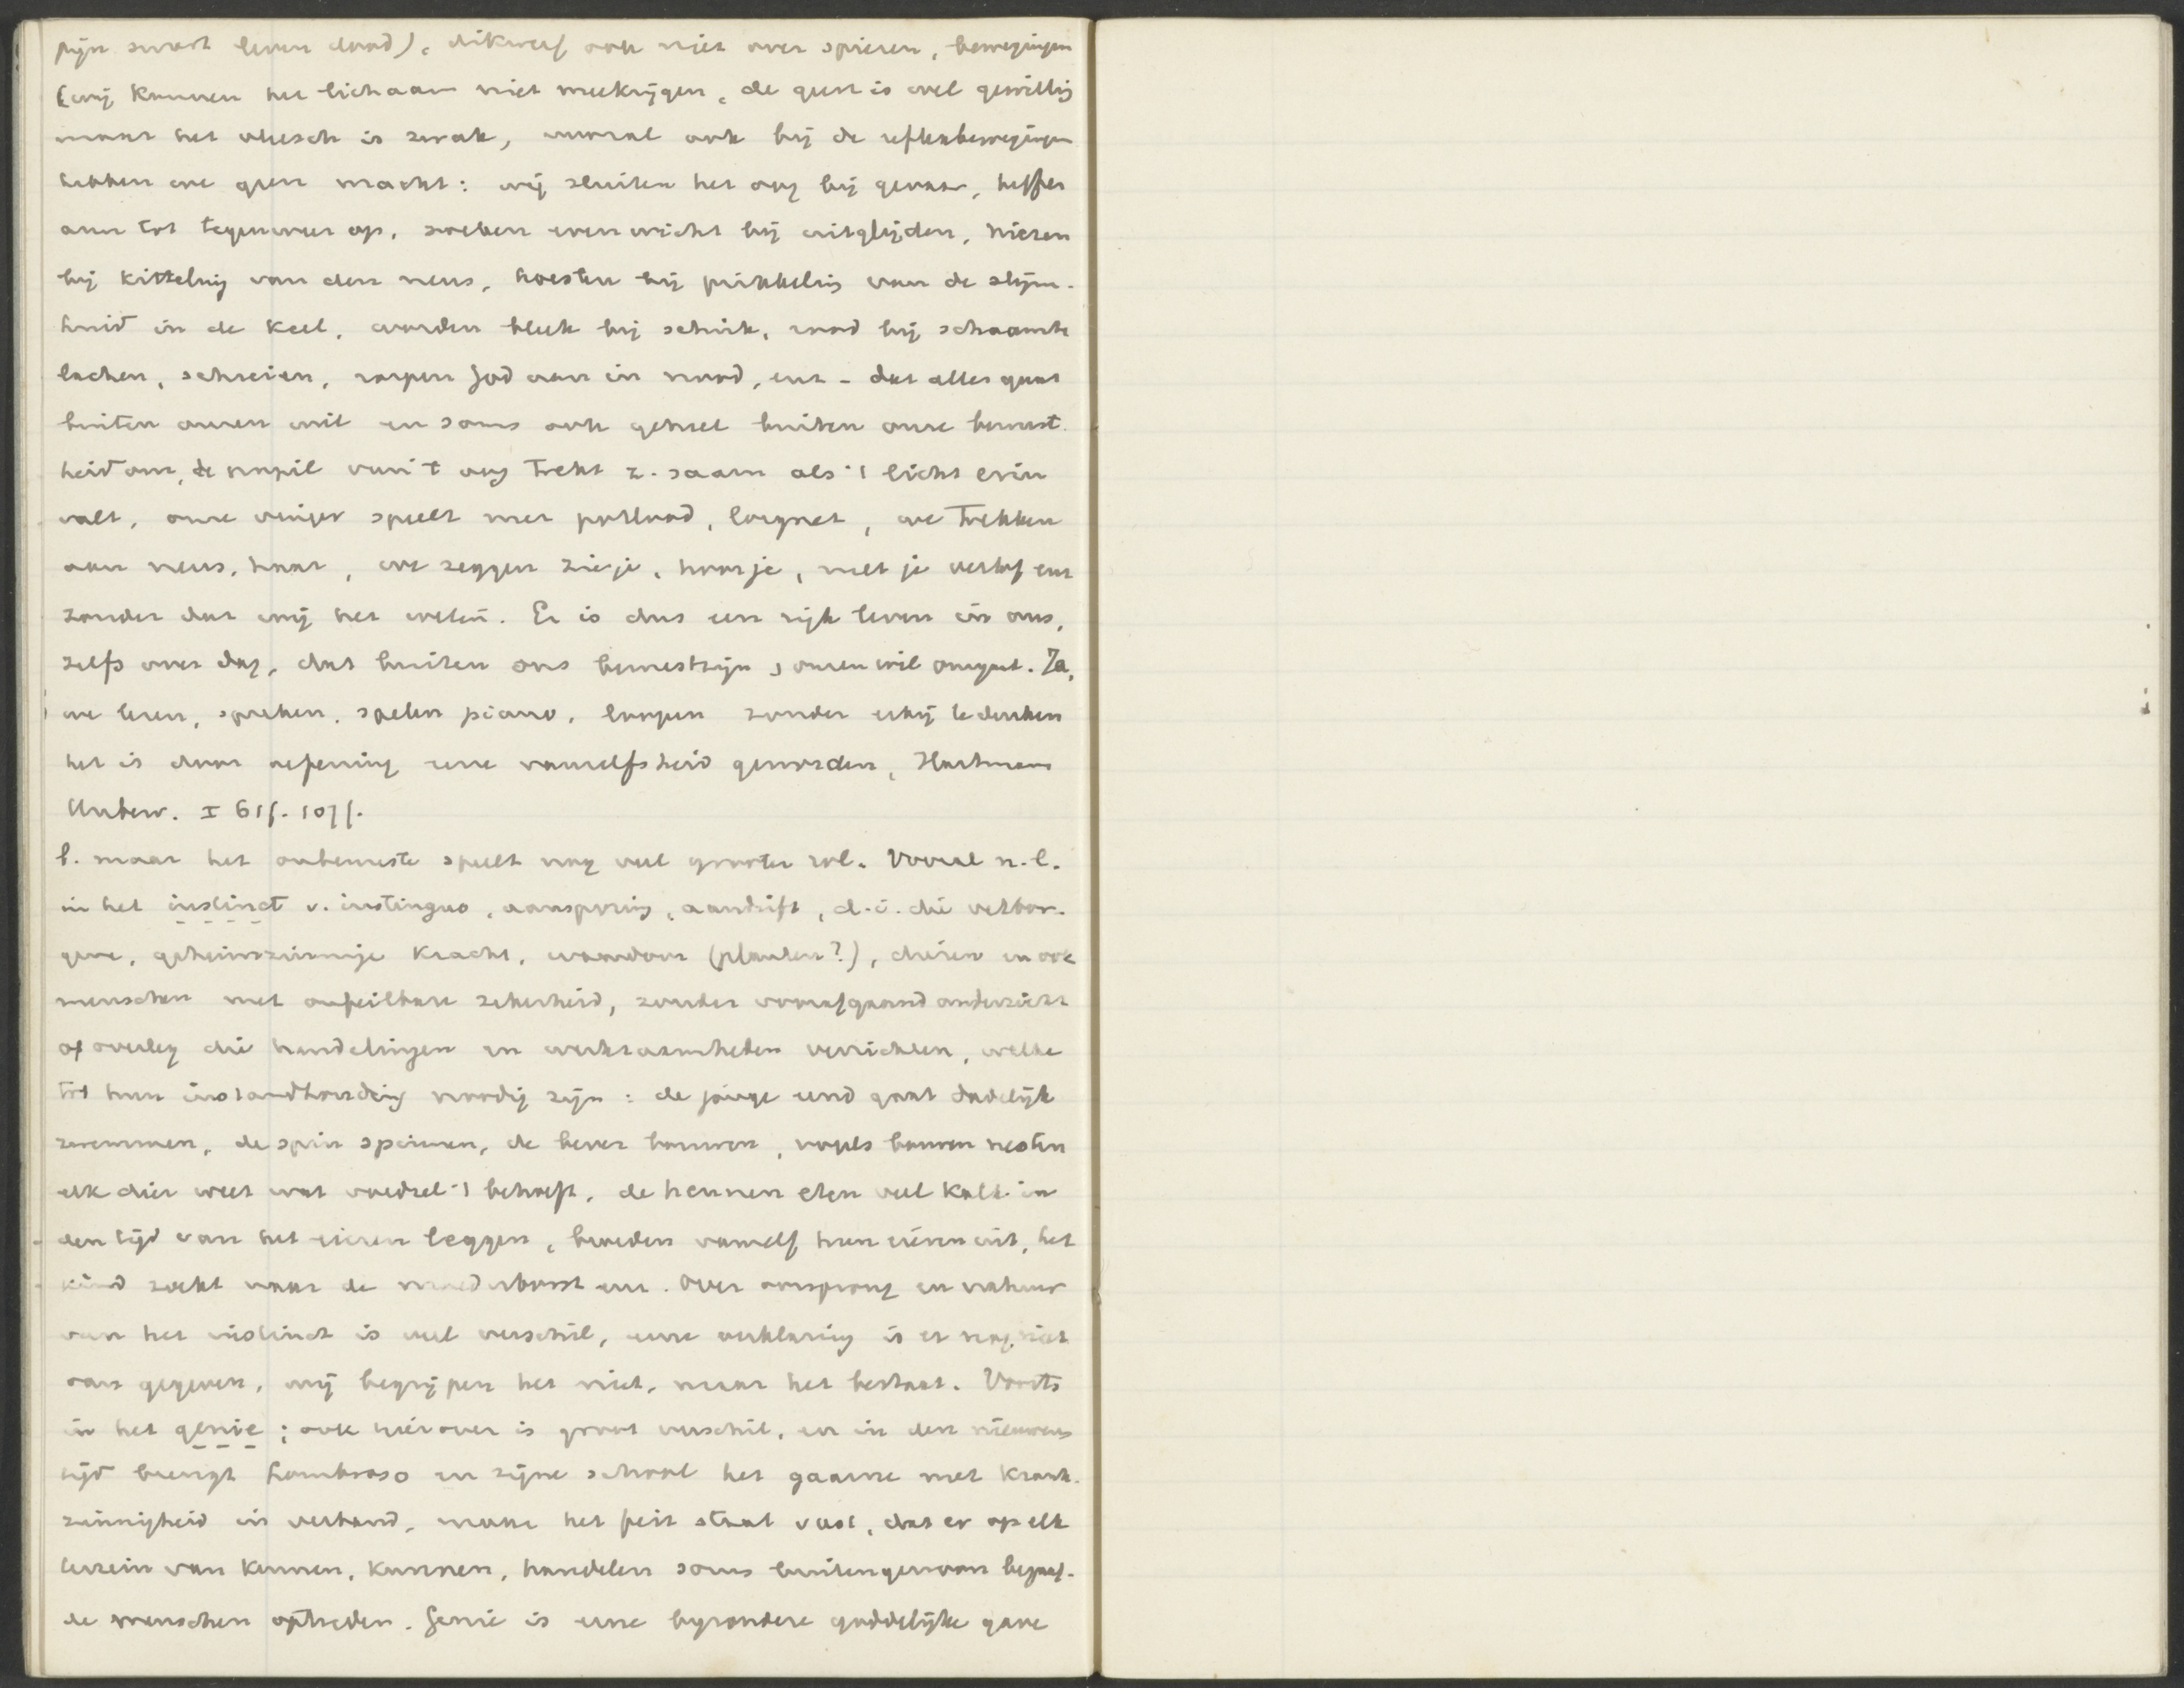 pijn smart leven dood), dikwerf ook niet over spieren, bewegingen
(wij kunnen het lichaam niet meekrijgen, de geest is wel gewillig
maar het vleesch is zwak, vooral ook bij de reflexbewegingen
hebben we geen macht: wij sluiten het oog bij gevaar, heffen
arm tot tegenweer op, zoeken evenwicht bij uitglijden, niezen
bij kitteling van den neus, hoesten bij prikkeling van de slijm-
huid in de keel, worden bleek bij schrik, rood bij schaamte
lachen, schreien, roepen God aan in nood, enz - dat alles gaat
buiten onzen wil en soms ook geheel buiten onze bewust-
heid om, de pupil van 't oog trekt z. saam als 't licht erin
valt, onze vinger speelt met potlood, lorgnet, we trekken
aan neus, haar, we zeggen zie je, hoor je, met je verlof enz
zonder dat wij het weten. Er is dus een rijk leven in ons,
zelfs over dag, dat buiten ons bewustzijn en onzen wil omgaat. Ja,
we lezen, spreken, spelen piano, loopen zonder erbij te denken
het is door oefening eene vanzelfsheid geworden, Hartmann
Unbew. I 61f. 107f.
b. maar het onbewuste speelt nog veel grooter rol. Vooral n.l.
in het instinct v. instinguo, aansporing, aandrift, d.i. die verbor-
gene, geheimzinnige kracht, waardoor (planten?), dieren en ook
menschen met onfeilbare zekerheid, zonder voorafgaand onderricht
of overleg die handelingen en werkzaamheden verrichten, welke
tot hun instandhouding noodig zijn: de jonge eend gaat dadelijk
zwemmen, de spin spinnen, de bever bouwen, vogels bouwen nesten
elk dier weet wat voedsel 't behoeft, de hennen eten veel kalk in
den tijd van het eieren leggen, broeden vanzelf hun eieren uit, het
kind zoekt naar de moederborst enz. Over oorsprong en natuur
van het instinct is veel verschil, eene verklaring is er nog niet
van gegeven, wij begrijpen het niet, maar het bestaat. Voorts
in het genie; ook hierover is groot verschil, en in den nieuwen
tijd brengt Lombroso en zijne school het gaarne met krank-
zinnigheid in verband, maar het feit staat vast, dat er op elk
terrein van kennen, kunnen, handelen soms buitengewoon begaaf-
de menschen optreden. Genie is eene bijzondere goddelijke gave